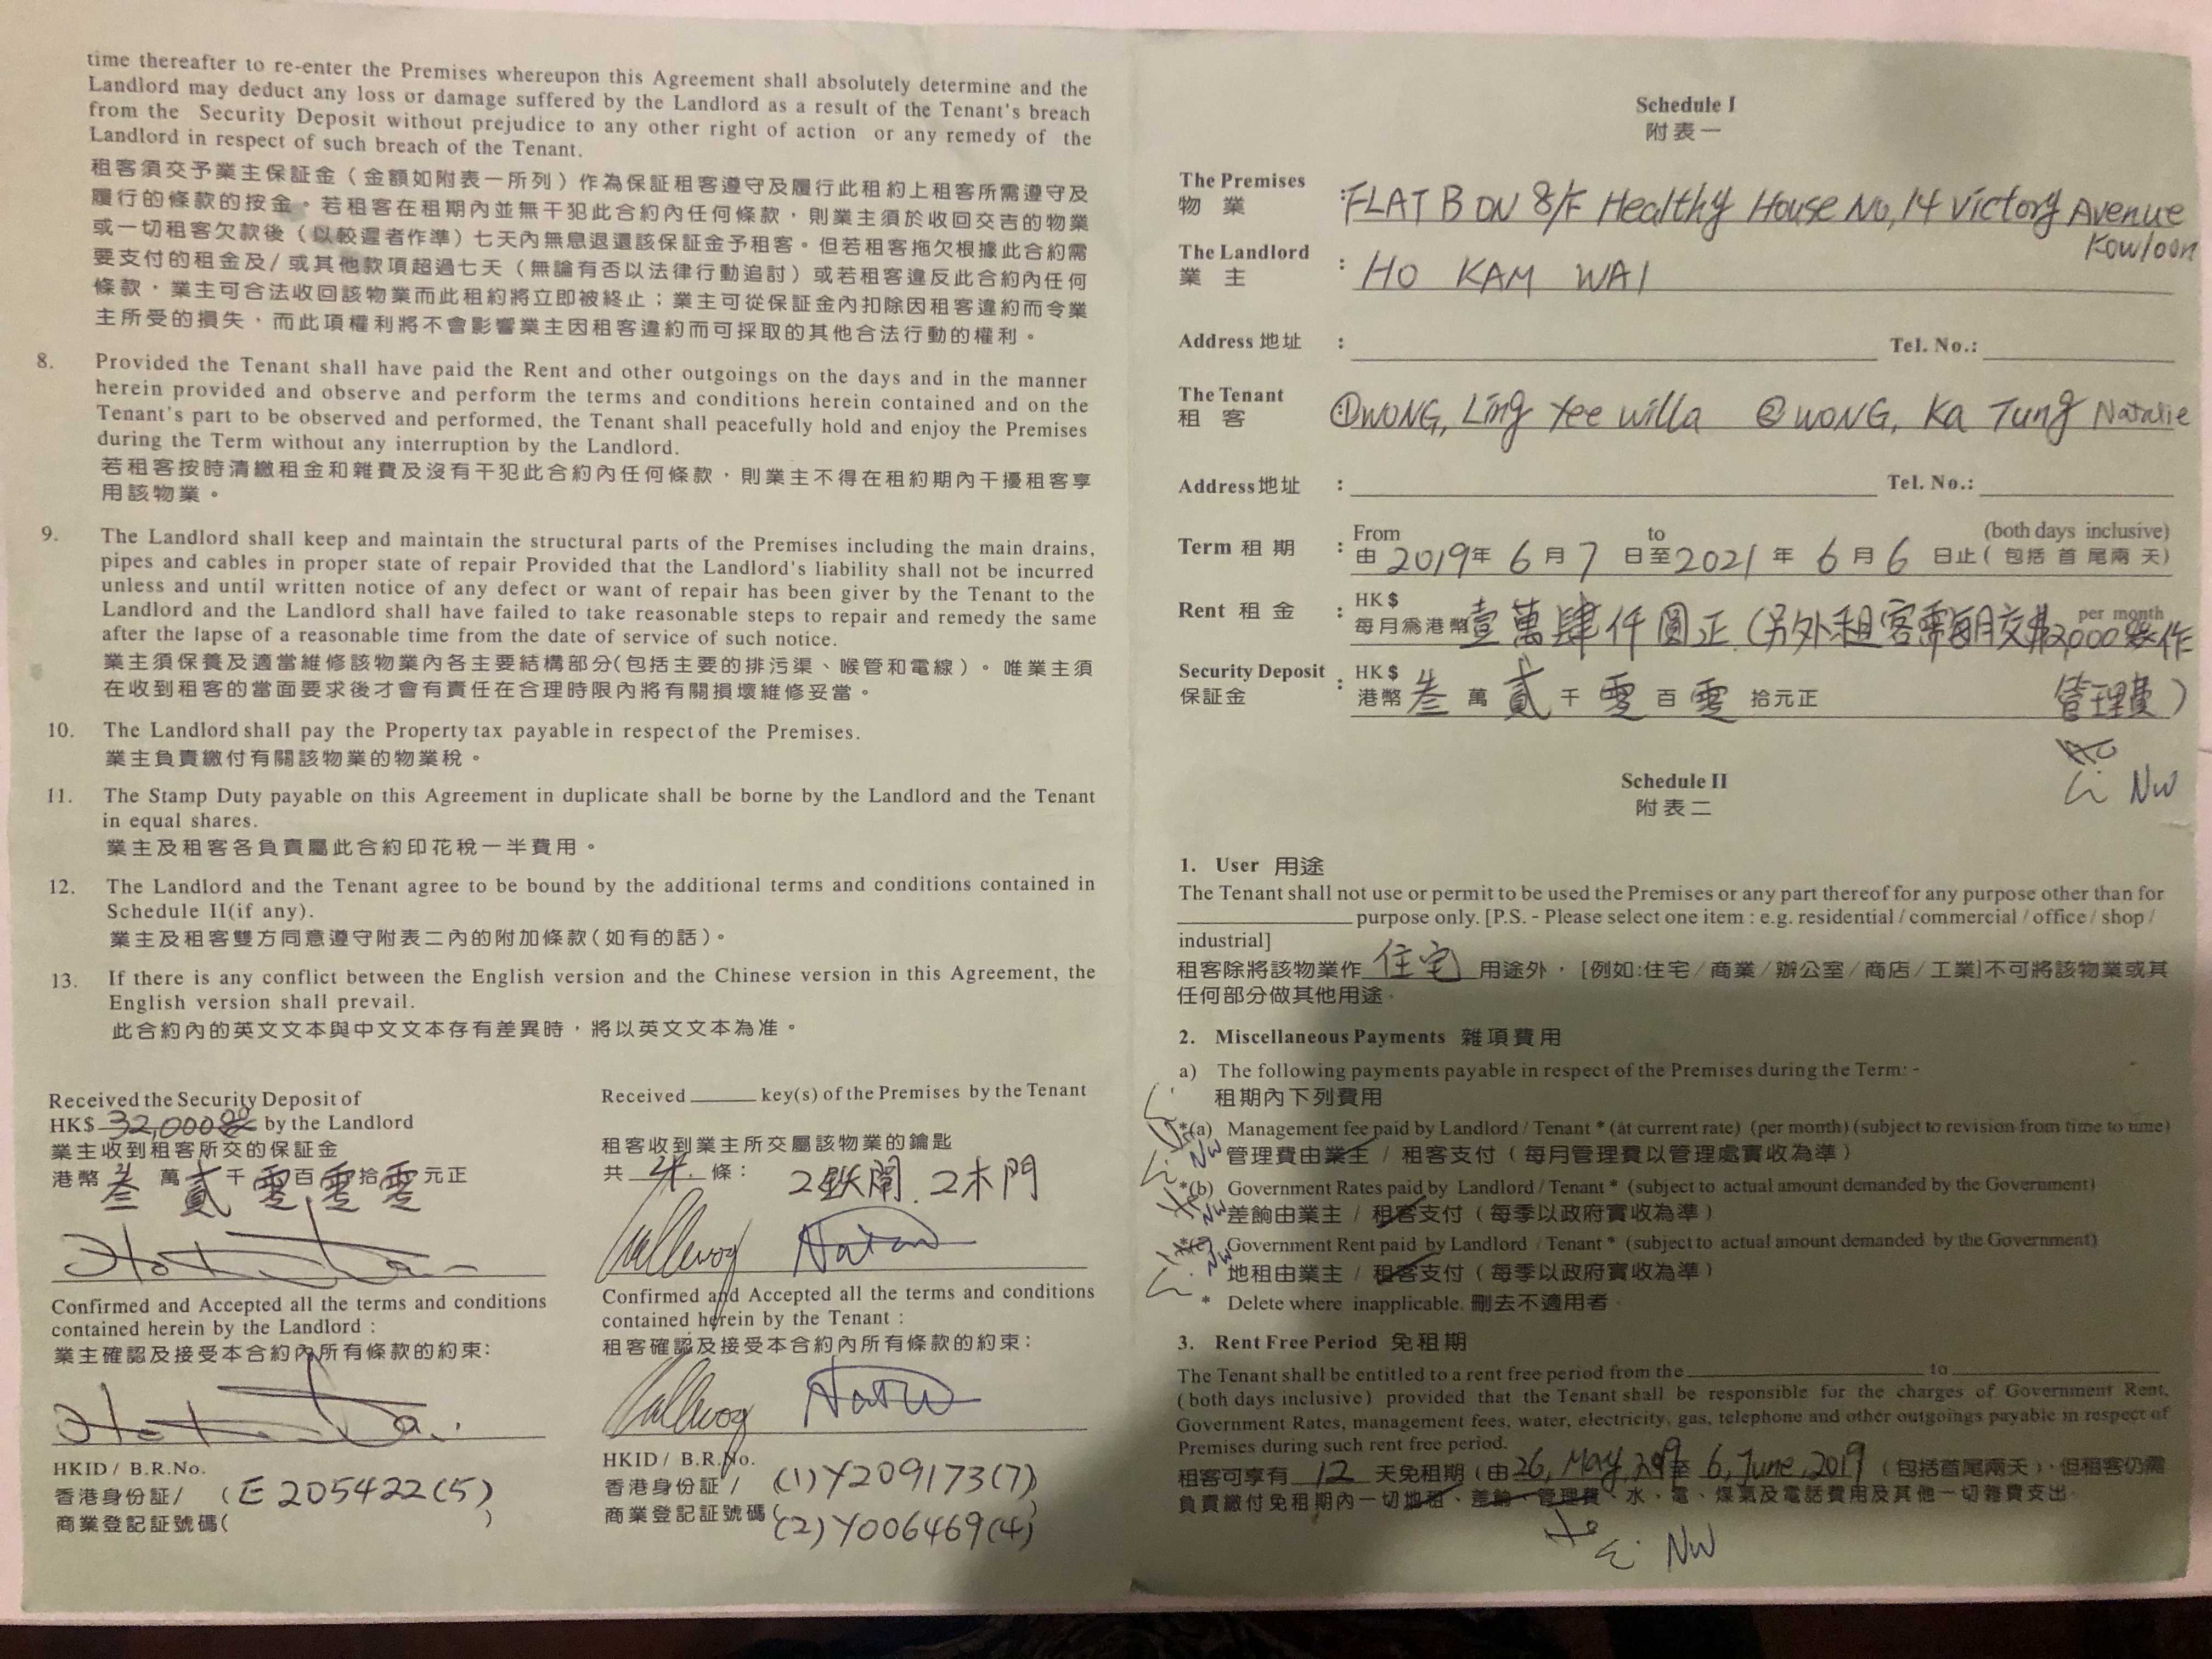 time thereafter to re-enter the Premises whereupon this Agreement shall absolutely determine and the
Landlord may deduct any loss or damage suffered by the Landlord as a result of the Tenant's breach
from the Security Deposit without prejudice to any other right of action or any remedy of the
Landlord in respect of such breach of the Tenant.
租客須交予業主保証金（金額如附表一所列）作為保証租客遵守及履行此租約上租客所需遵守及
履行的條款的按金。若租客在租期內並無干犯此合約內任何條款，則業主須於收回交吉的物業
或一切租客欠款後（以較遲者作準）七天內無息退還該保証金予租客。但若租客拖欠根據此合約需
要支付的租金及/或其他款項超過七天（無論有否以法律行動追討）或若租客違反此合約內任何
條款，業主可合法收回該物業而此租約將立即被終止；業主可從保証金內扣除因租客違約而令業
主所受的損失，而此項權利將不會影響業主因租客違約而可採取的其他合法行動的權利。
8. Provided the Tenant shall have paid the Rent and other outgoings on the days and in the manner
herein provided and observe and perform the terms and conditions herein contained and on the
Tenant's part to be observed and performed, the Tenant shall peacefully hold and enjoy the Premises
during the Term without any interruption by the Landlord.
若租客按時清繳租金和雜費及沒有干犯此合約內任何條款，則業主不得在租約期內干擾租客享
用該物業。
9. The Landlord shall keep and maintain the structural parts of the Premises including the main drains,
pipes and cables in proper state of repair Provided that the Landlord's liability shall not be incurred
unless and until written notice of any defect or want of repair has been giver by the Tenant to the
Landlord and the Landlord shall have failed to take reasonable steps to repair and remedy the same
after the lapse of a reasonable time from the date of service of such notice.
業主須保養及適當維修該物業內各主要結構部分(包括主要的排污渠、喉管和電線）。唯業主須
在收到租客的當面要求後才會有責任在合理時限內將有關損壞維修妥當。
10. The Landlord shall pay the Property tax payable in respect of the Premises.
業主負責繳付有關該物業的物業稅。
11. The Stamp Duty payable on this Agreement in duplicate shall be borne by the Landlord and the Tenant
in equal shares.
業主及租客各負責屬此合約印花稅一半費用。
12. The Landlord and the Tenant agree to be bound by the additional terms and conditions contained in
Schedule II(if any).
業主及租客雙方同意遵守附表二內的附加條款(如有的話)。
13. If there is any conflict between the English version and the Chinese version in this Agreement, the
English version shall prevail.
此合約內的英文文本與中文文本存有差異時，將以英文文本為准。
Received the Security Deposit of
HK$ 32,000 by the Landlord
業主收到租客所交的保証金
港幣 叁 萬 貳 千 零 百 零 拾 零 元正
Confirmed and Accepted all the terms and conditions
contained herein by the Landlord :
業主確認及接受本合約內所有條款的約束:
HKID / B.R.No.
香港身份証/ （E 205422(5)
商業登記証號碼( )
Received ____ key(s) of the Premises by the Tenant
租客收到業主所交屬該物業的鑰匙
共 條： 2鉄閘, 2木門
Confirmed and Accepted all the terms and conditions
contained herein by the Tenant :
租客確認及接受本合約內所有條款的約束：
HKID / B.R.No.
香港身份証/ (1) Y209173(7)
商業登記証號碼 (2) Y006469(4)
Schedule I
附表一
The Premises
物業 : FLAT B ON 8/F Healthy House No, 14 Victory Avenue
Kowloon
The Landlord
業主 : HO KAM WAI
Address 地址 : Tel. No.:
The Tenant
租客 ①WONG, Ling Yee Willa ②WONG, Ka Tung Natalie
Address地址 : Tel. No.:
From to (both days inclusive)
Term 租期 : 由 2019年 6 月 7 日至 2021 年 6 月 6 日止（包括首尾兩天）
Rent 租金 : HK$ per month
每月為港幣 壹萬肆仟圓正 (另外租客需每月交$2,000 作
管理費)
Security Deposit : HK$
保証金 港幣 叁 萬 貳 千 零 百 零 拾元正
NW
Schedule II
附表二
1. User 用途
The Tenant shall not use or permit to be used the Premises or any part thereof for any purpose other than for
____ purpose only. [P.S. - Please select one item : e.g. residential / commercial / office / shop /
industrial]
租客除將該物業作 住宅 用途外，[例如:住宅/商業/辦公室/商店/工業]不可將該物業或其
任何部分做其他用途。
2. Miscellaneous Payments 雜項費用
a) The following payments payable in respect of the Premises during the Term: -
租期內下列費用
*(a) Management fee paid by Landlord / Tenant * (at current rate) (per month) (subject to revision from time to time)
NW 管理費由業主 / 租客支付（每月管理費以管理處實收為準）
*(b) Government Rates paid by Landlord / Tenant * (subject to actual amount demanded by the Government)
NW 差餉由業主 / 租客支付（每季以政府實收為準）
*(c) Government Rent paid by Landlord / Tenant * (subject to actual amount demanded by the Government)
NW 地租由業主 / 租客支付（每季以政府實收為準）
* Delete where inapplicable. 刪去不適用者。
3. Rent Free Period 免租期
The Tenant shall be entitled to a rent free period from the ____ to ____
(both days inclusive) provided that the Tenant shall be responsible for the charges of Government Rent,
Government Rates, management fees, water, electricity, gas, telephone and other outgoings payable in respect of
Premises during such rent free period.
租客可享有 12 天免租期（由 26, May, 2019 至 6, June, 2019 （包括首尾兩天），但租客仍需
負責繳付免租期內一切地租、差餉、管理費、水、電、煤氣及電話費用及其他一切雜費支出。
NW